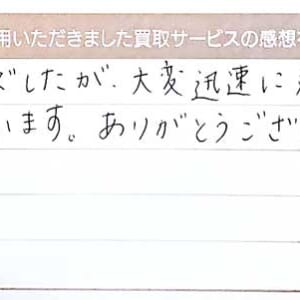 用いただきました買取サービスの感想を
ズしたが、大変迅速に
います。ありがとうござ